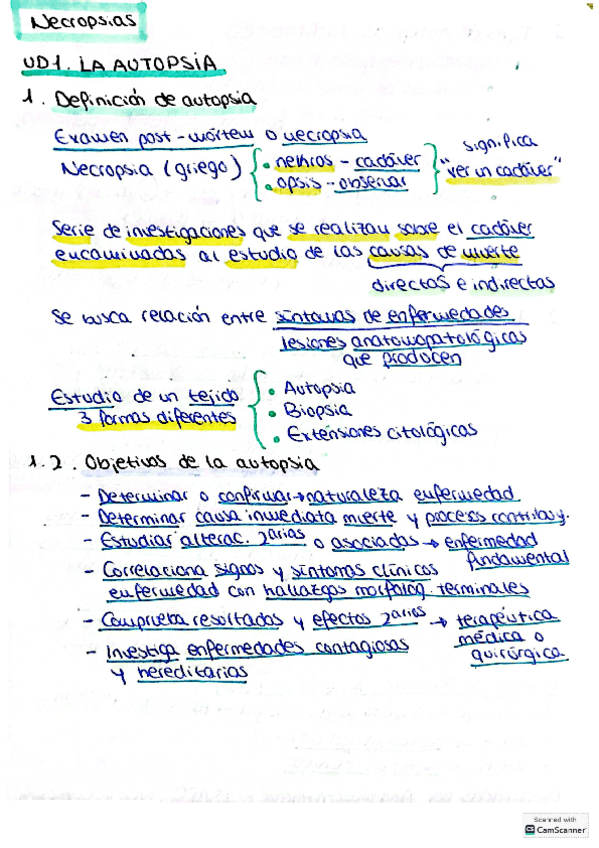 Necropsias
UD1. LA AUTOPSIA
1. Definición de autopsia
Examen post-mórtem o necropsia
Necropsia (griego) • nekros - cadáver • opsis - observar significa "ver un cadáver"
Serie de investigaciones que se realizan sobre el cadáver
encaminadas al estudio de las causas de muerte
directas e indirectas
Se busca relación entre síntomas de enfermedades
lesiones anatomopatológicas
que producen
Estudio de un tejido
3 formas diferentes
• Autopsia
• Biopsia
• Extensiones citológicas
1.2. Objetivos de la autopsia
- Determinar o confirmar → naturaleza enfermedad
- Determinar causa inmediata muerte y procesos contribuy.
- Estudiar alterac. 2arias o asociadas → enfermedad
fundamental
- Correlaciona signos y síntomas clínicos
enfermedad con hallazgos morfológ. terminales
- Comprueba resultados y efectos 2arios → terapéutica
médica o
quirúrgica
- Investiga enfermedades contagiosas
y hereditarias
Scanned with
CS CamScanner